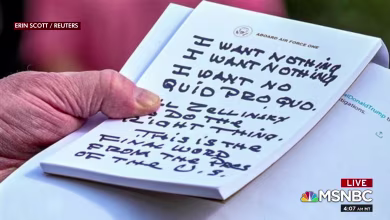 ERIN SCOTT / REUTERS
ABOARD AIR FORCE ONE
I WANT NOTHING.
I WANT NOTHING.
I WANT NO
QUID PRO QUO.
TELL ZELLINSKY
TO DO THE
RIGHT THING.
THIS IS THE
FINAL WORD
FROM THE PRES
OF THE U.S.
DonaldTrump
tigations.
LIVE
MSNBC
4:07 AM MT